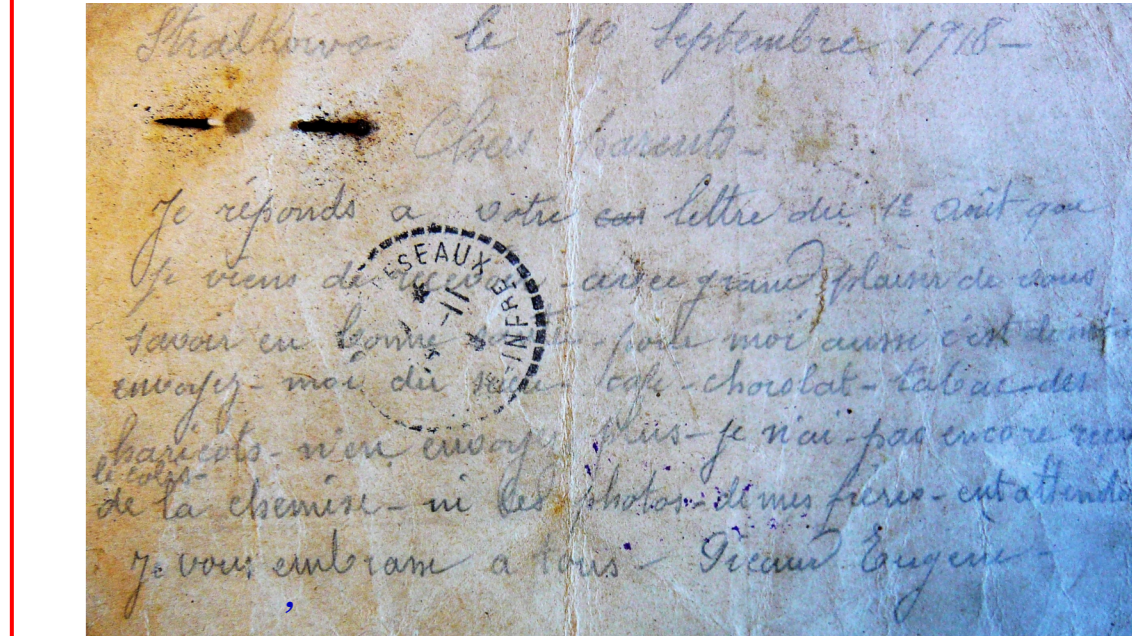 Stralkowo le 10 Septembre 1918 -
Chers parents -
Je réponds a votre lettre du 1e Août que
je viens de recevoir - avec grand plaisir de vous
savoir en bonne santé - pour moi aussi c'est de même
envoyez - moi du - café - chocolat - tabac - des
haricots - n'en envoyez plus - je n'ai - pas encore reçu
le colis -
de la chemise - ni les photos - de mes frères - en attendant
Je vous embrasse a tous - Eugène -
RESEAUX
INFRE
-11